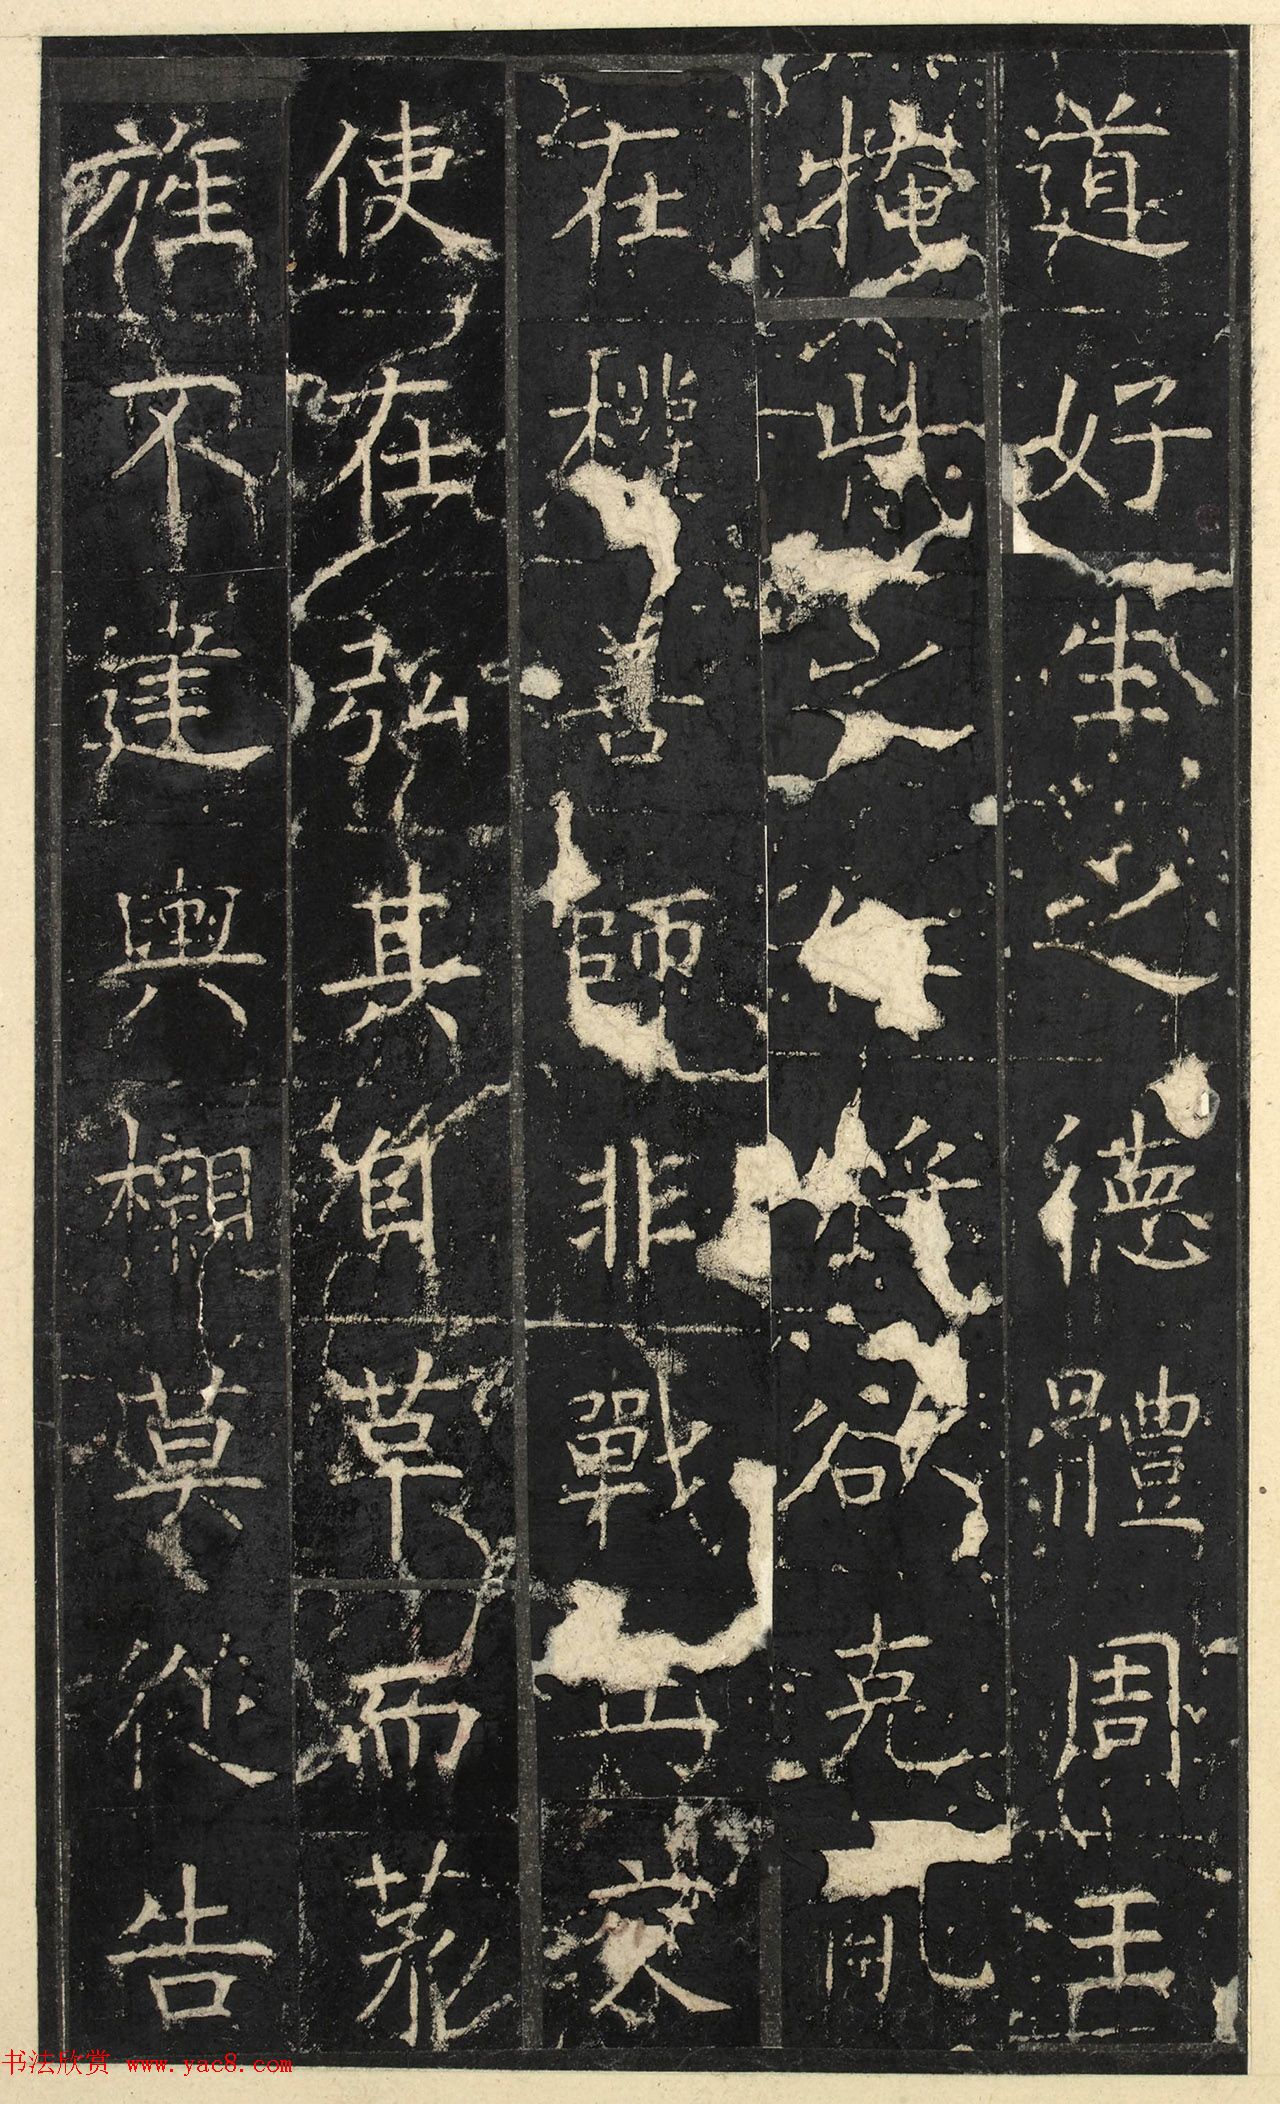 道好生之德體周王
掩骴之將欲克亂
在權善師非戰
使在弘其湏草而
旌不建輿莫從告
书法欣赏 www.yac8.com